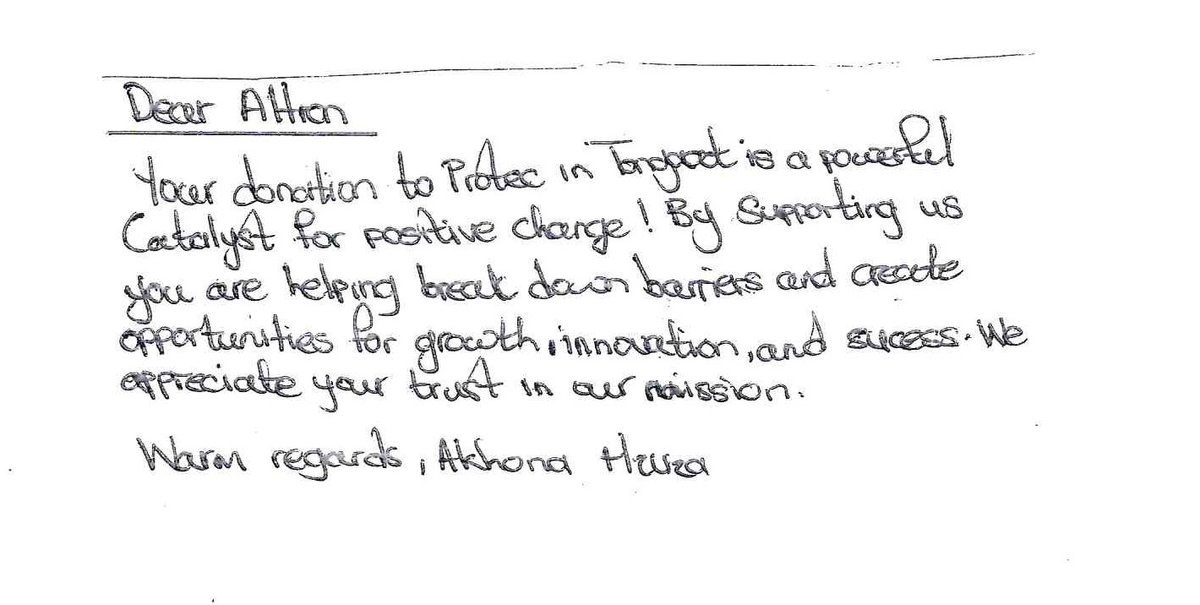 Dear Altron
Your donation to Protec in Tongaat is a powerful
Catalyst for positive change! By Supporting us
you are helping break down barriers and create
opportunities for growth, innovation, and sucess. We
appreciate your trust in our mission.
Warm regards, Akhona